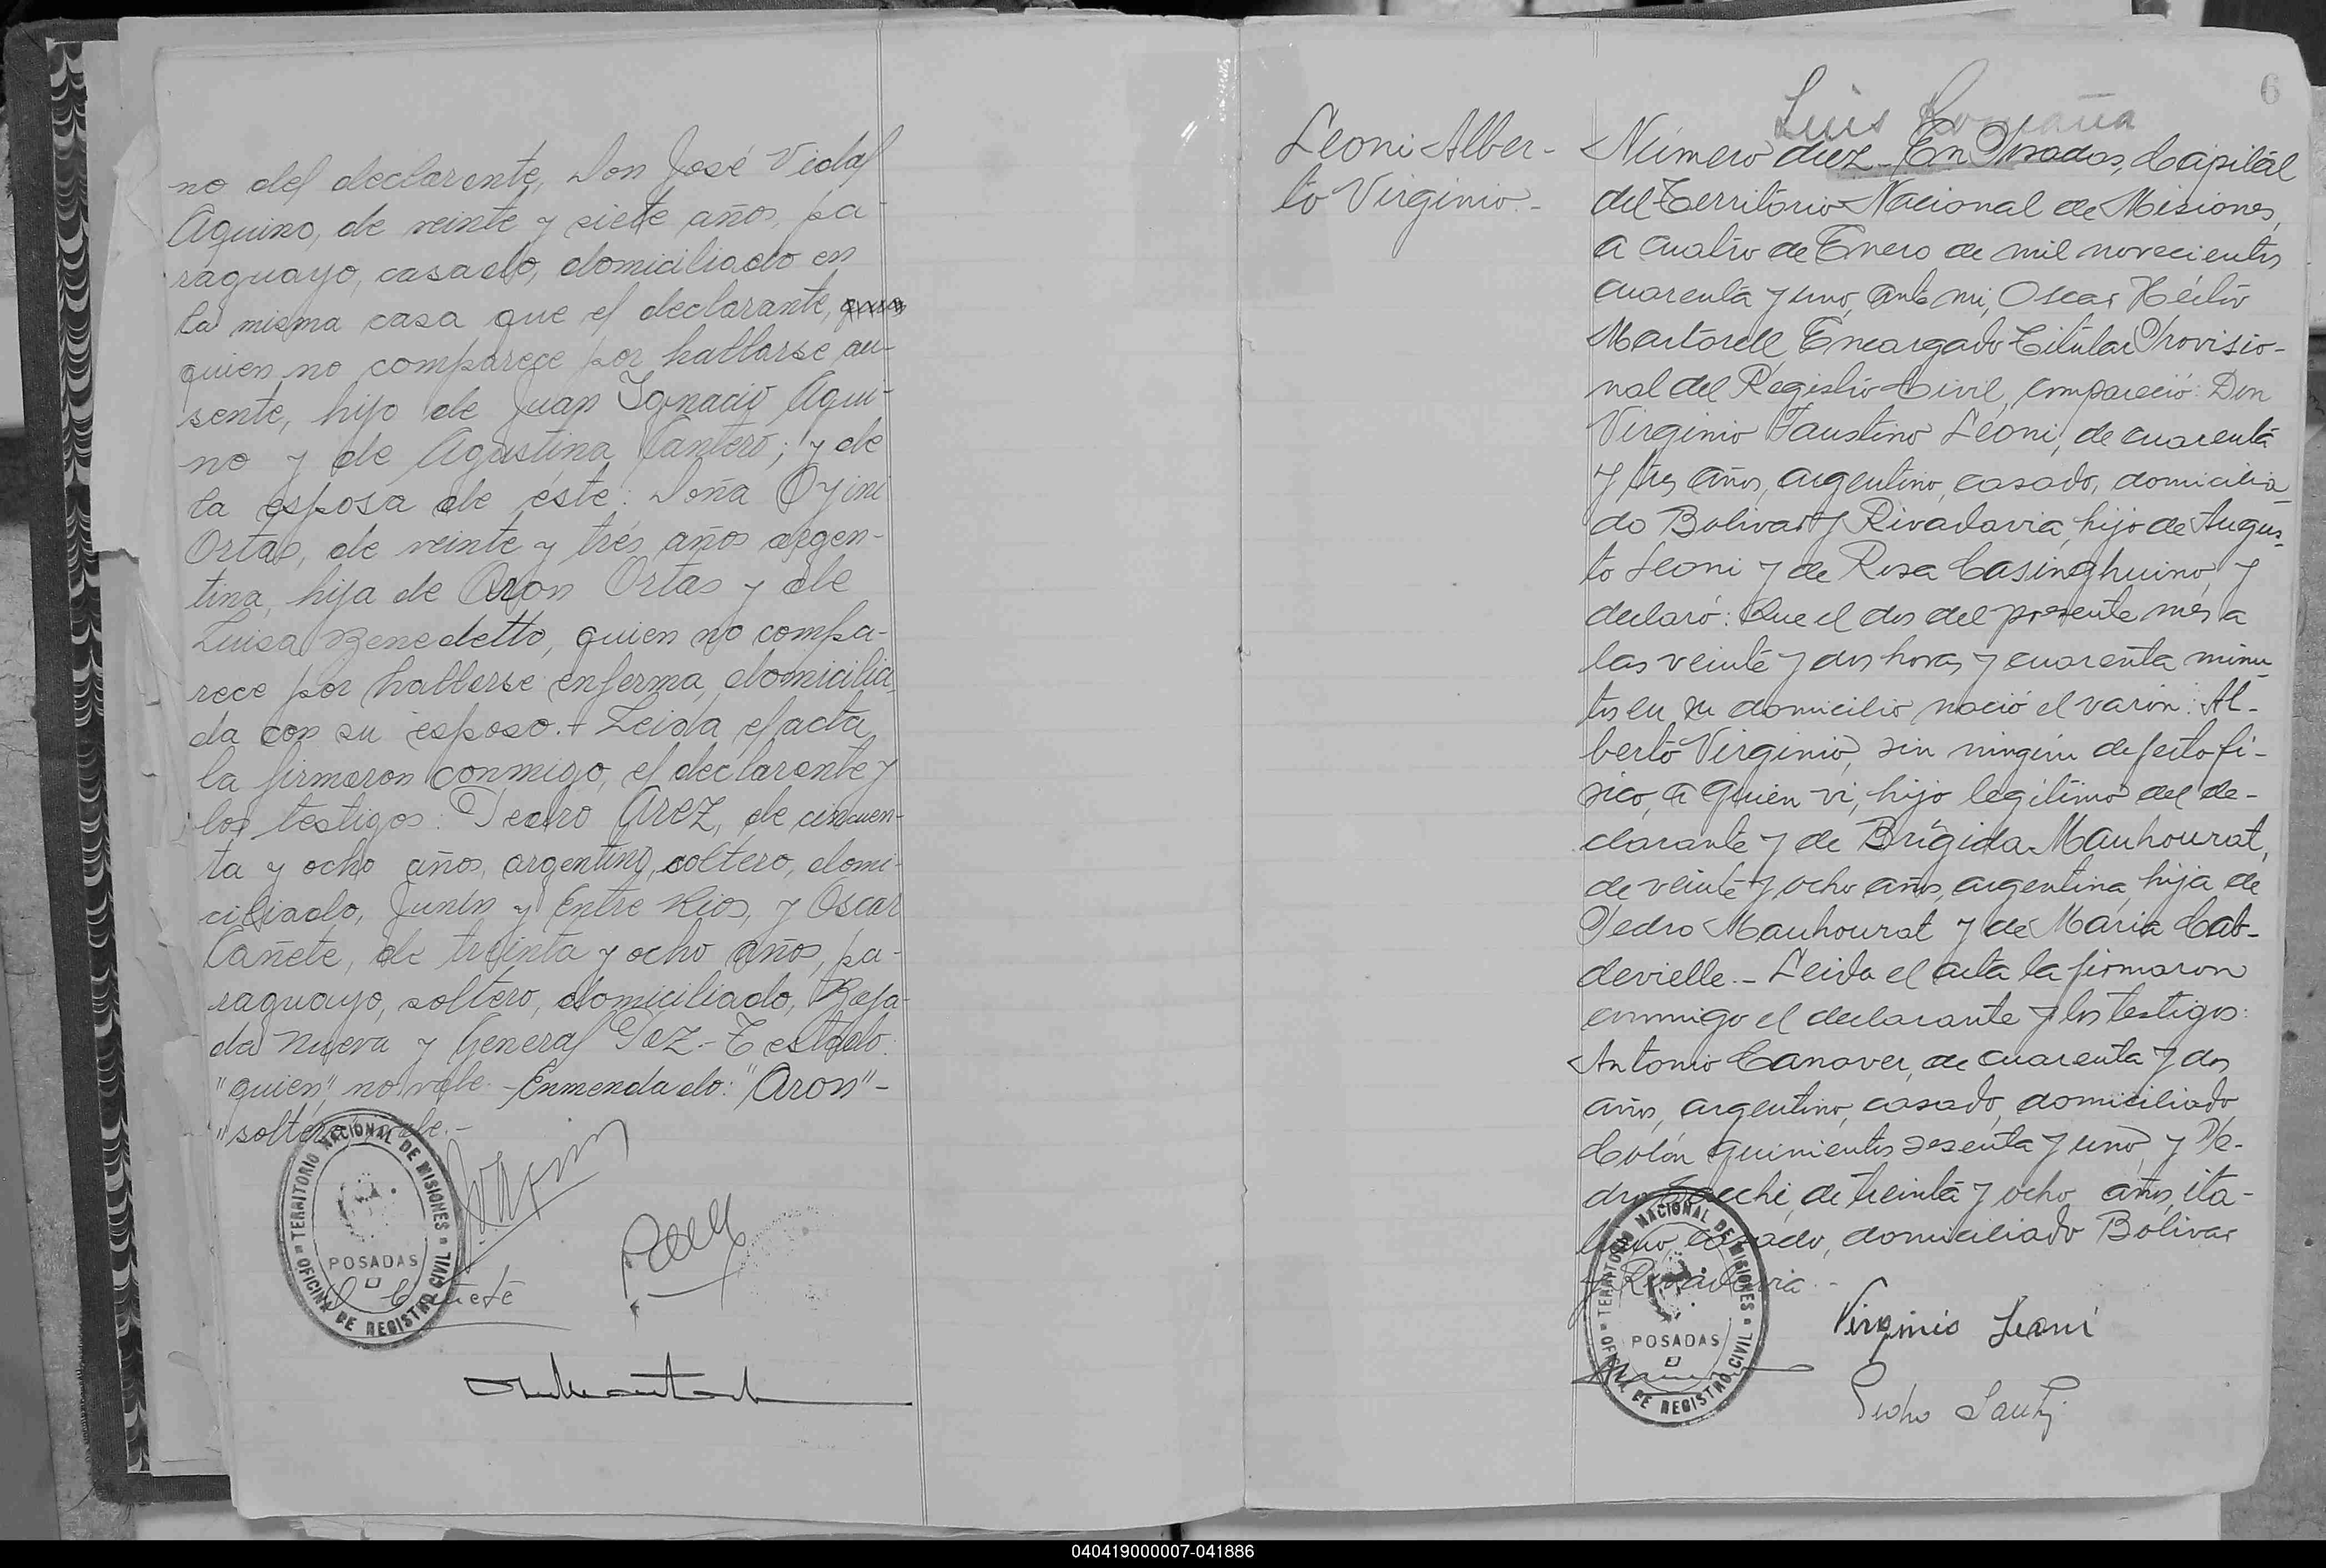 no del declarante, Don José Vidal
Aquino, de veinte y siete años, pa-
raguayo, casado, domiciliado en
la misma casa que el declarante, quien
quien no comparece por hallarse au-
sente, hijo de Juan Ignacio Aqui-
no y de Agustina Cantero; y de
la esposa de éste: Doña Oyini
Ortas, de veinte y trés años argen-
tina, hija de Aron Ortas y de
Luisa Benedetto, quien no compa-
rece por hallarse enferma, domicilia-
da con su esposo. + Leida el acta
la firmaron conmigo, el declarante y
los testigos: Pedro Arez, de cincuen-
ta y ocho años, argentino, soltero, domi-
ciliado, Junin y Entre Rios, y Oscar
Cañete, de treinta y ocho años, pa-
raguayo, soltero, domiciliado, Baja-
da Nueva y General Paz.- Testado:
"quien", no vale.- Enmendado: "Aron"-
"soltero", vale.-
TERRITORIO NACIONAL DE MISIONES
POSADAS
OFICINA DE REGISTRO CIVIL
O Cañete
6
Luis Romaña
Leoni Alber-
to Virginio.-
Número diez.- En Posadas, Capital
del Territorio Nacional de Misiones,
a cuatro de Enero de mil novecientos
cuarenta y uno, ante mi, Oscar Héctor
Martorell Encargado Titular Provisio-
nal del Registro Civil, compareció: Don
Virginio Faustino Leoni, de cuarenta
y tres años, argentino, casado, domicilia-
do Bolivar y Rivadavia, hijo de Augus-
to Leoni y de Rosa Casinghuino, y
declaró: Que el dos del presente més a
las veinte y dos horas y cuarenta minu-
tos en su domicilio nació el varón: Al-
berto Virginio, sin ningún defecto fí-
sico, a quien vi, hijo legítimo del de-
clarante y de Brígida Mauhourat,
de veinte y ocho años, argentina, hija de
Pedro Mauhourat y de María Cab-
devielle.- Leida el acta la firmaron
conmigo el declarante y los testigos:
Antonio Canaver, de cuarenta y dos
años, argentino, casado, domiciliado
Colón quinientos sesenta y uno, y Pe-
dro de treinta y ocho años, ita-
liano, casado, domiciliado Bolivar
y Rivadavia.-
TERRITORIO NACIONAL DE MISIONES
POSADAS
OFICINA DE REGISTRO CIVIL
Virginio Leoni
Pedro
040419000007-041886